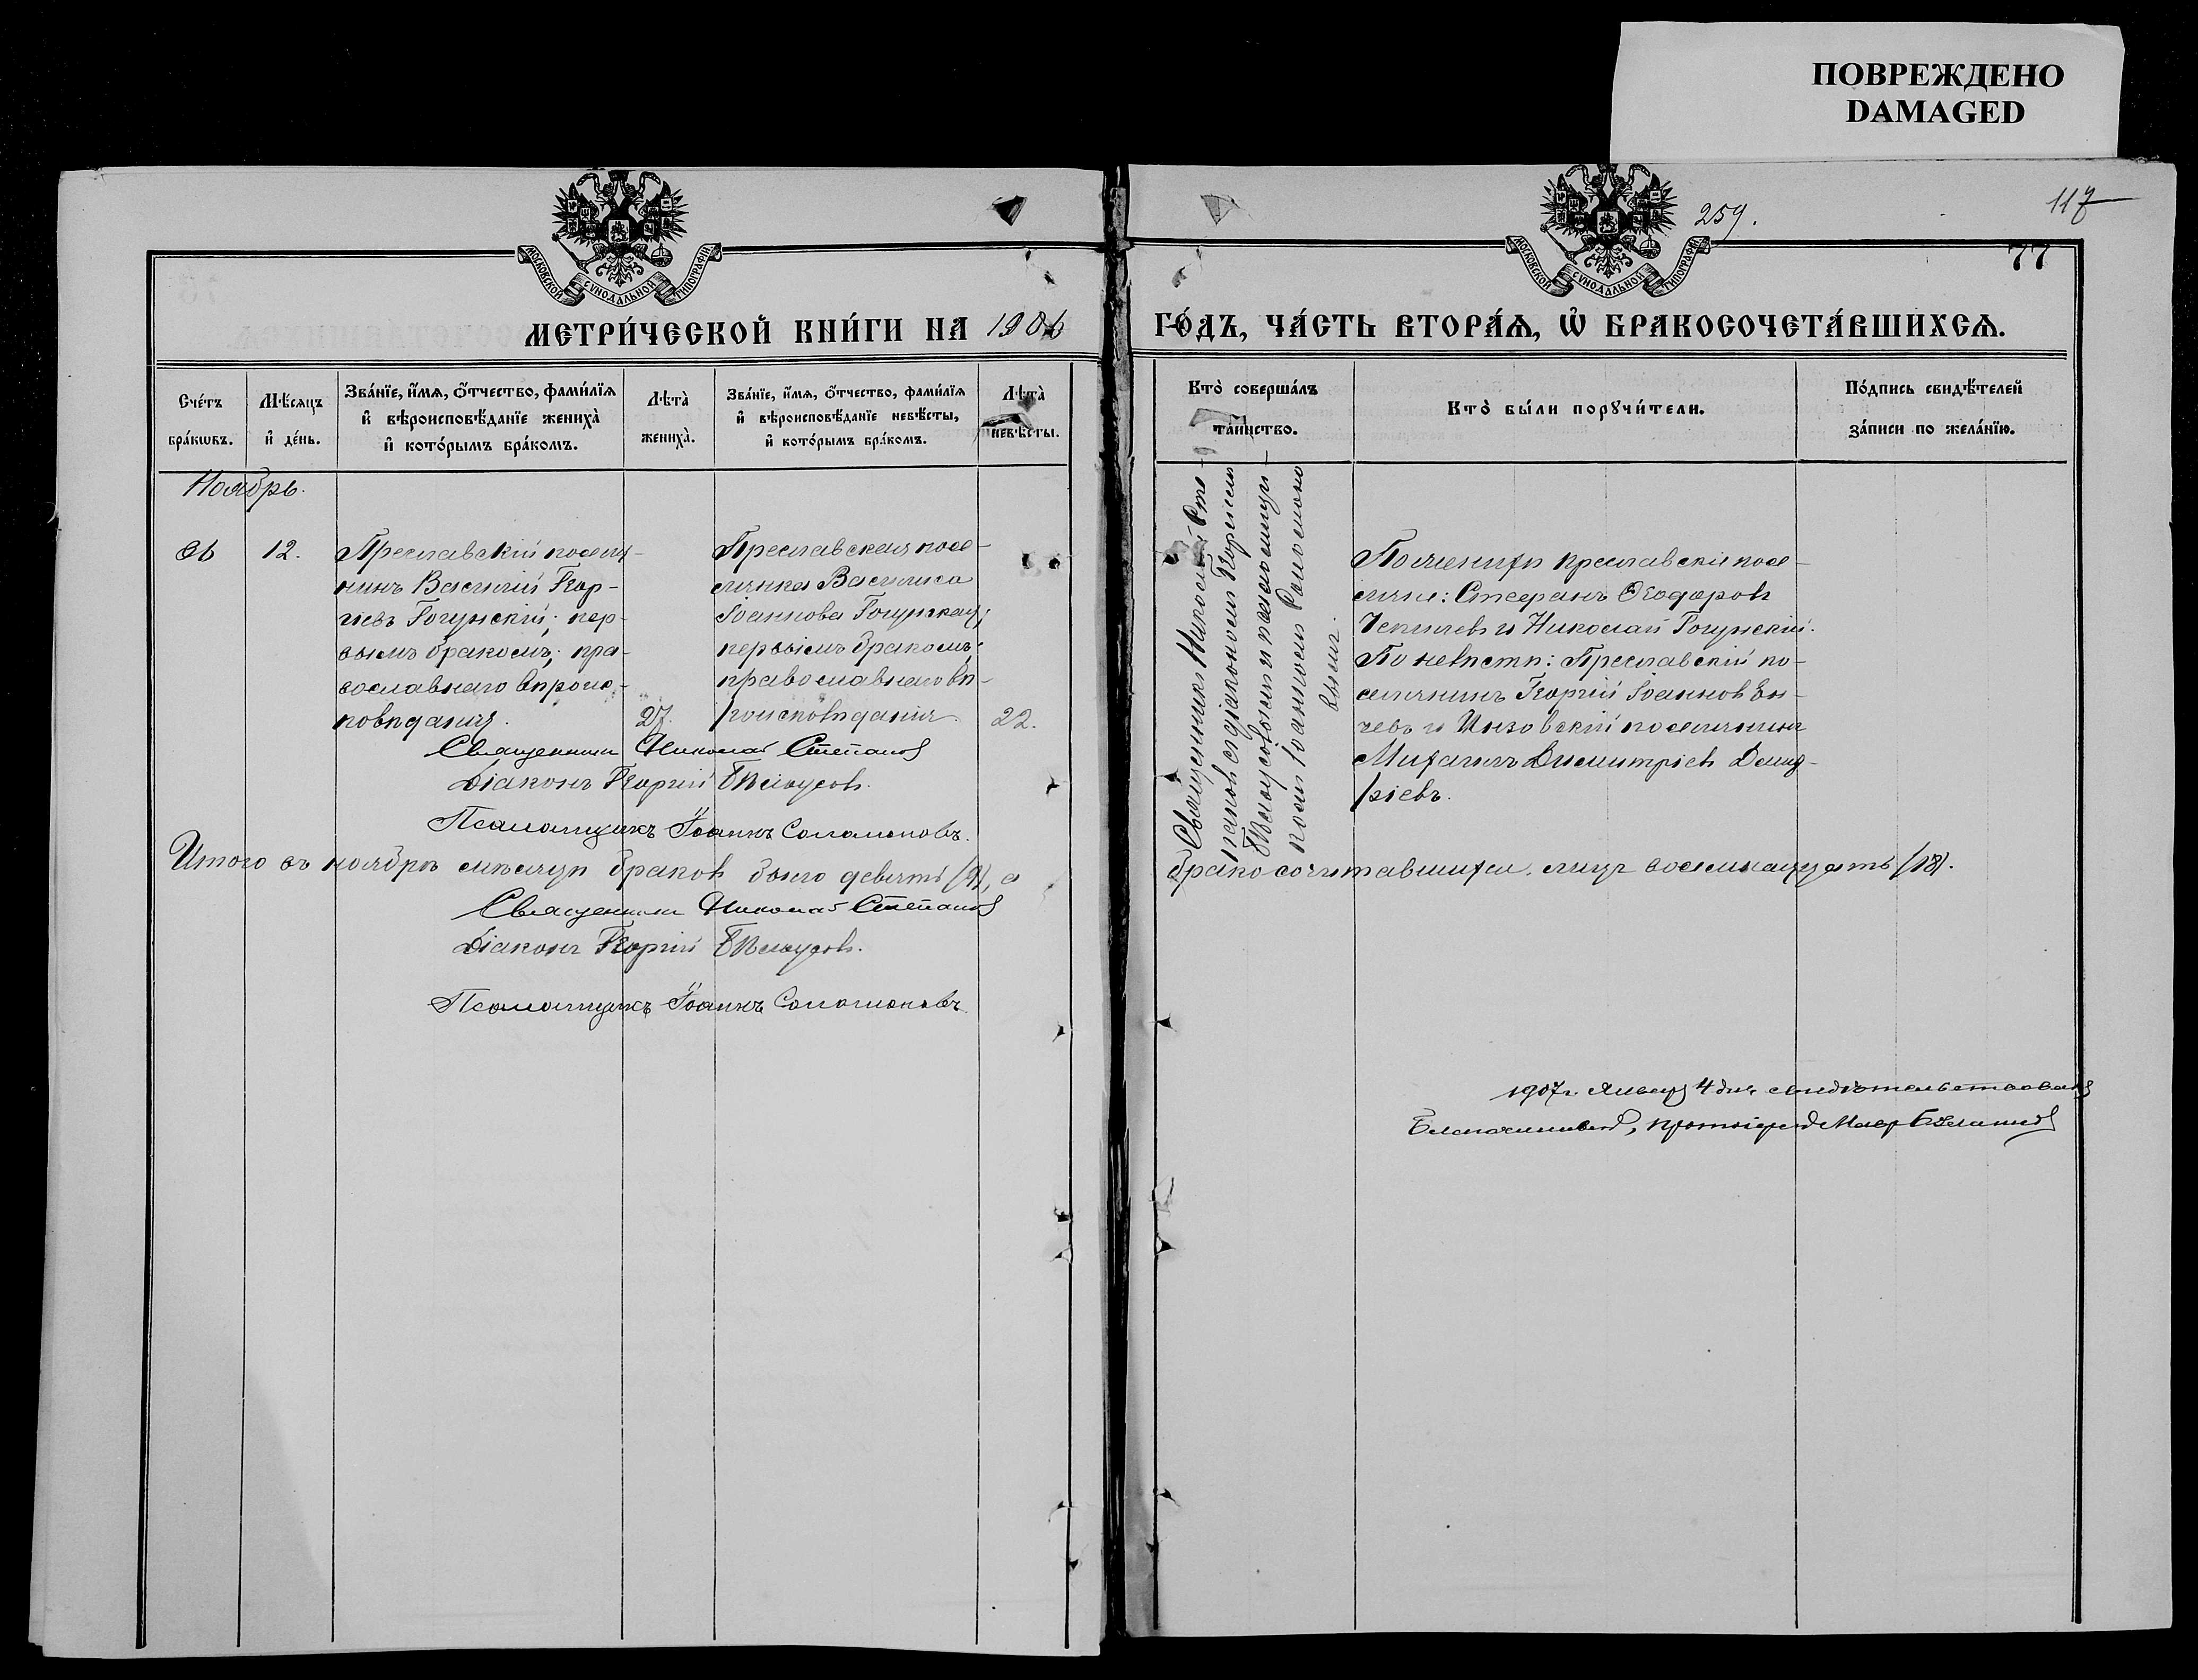 ПОВРЕЖДЕНО
DAMAGED
117
259.
77
МОСКОВСКОЙ СУНОДАЛЬНОЙ ТИПОГРАФІИ
МОСКОВСКОЙ СУНОДАЛЬНОЙ ТИПОГРАФІИ
МЕТРИ́ЧЕСКОЙ КНИ́ГИ НА 1906
ГО́ДЪ, ЧА́СТЬ ВТОРА́Ѧ, Ѡ҆ БРАКОСОЧЕТА́ВШИХСѦ.
Сче́тъ бра́кѡвъ.
Мѣ́сѧцъ и҆ де́нь.
Зва́нїе, и҆́мѧ, ѻ҆́тчество, фами́лїѧ
и҆ вѣроисповѣ́данїе жениха̀
и҆ кото́рымъ бра́комъ.
Лѣта̀ жениха̀.
Зва́нїе, и҆́мѧ, ѻ҆́тчество, фами́лїѧ
и҆ вѣроисповѣ́данїе невѣ́сты,
и҆ кото́рымъ бра́комъ.
Лѣта̀ невѣ́сты.
Кто̀ соверша́лъ та́инство.
Кто̀ бы́ли порꙋчи́тели.
По́дпись свидѣ́телей
за́писи по жела́нїю.
Ноябрь.
12.
Преславскій поселя-
нинъ Василій Геор-
гіевъ Гогунскій; пер-
вымъ бракомъ; пра-
вославнаго вѣроис-
повѣданія.
27.
Преславская посе-
лянка Василиса
Іоаннова Гогунская;
первымъ бракомъ;
православнаго вѣ-
роисповѣданія.
22.
Священникъ Николай Сте-
пановъ съ діакономъ Георгіемъ
Бѣлоусовымъ и псаломщи-
комъ Іоанномъ Соломоно-
вымъ.
По женихѣ преславскіе посе-
ляне: Стефанъ Ѳеодоровъ
и Николай Гогунскій.
По невѣстѣ: Преславскій по-
селянинъ Георгій Іоанновъ Ен-
чевъ и Инзовскій поселянинъ
Михаилъ Димитріевъ Дми-
ріевъ.
Священникъ Николай Степановъ
Діаконъ Георгій Бѣлоусовъ.
Псаломщикъ Іоаннъ Соломоновъ.
Итого въ ноябрѣ мѣсяцѣ браковъ было девять (9), а
бракосочитавшихся лицъ восемнадцать (18).
Священникъ Николай Степановъ
Діаконъ Георгій Бѣлоусовъ.
Псаломщикъ Іоаннъ Соломоновъ.
1907 г. Января 4 дня свидѣтельствовалъ
Благочинный, протоіерей